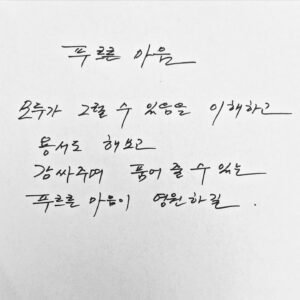 푸르른 마음
모두가 그럴 수 있음을 이해하고
용서도 해보고
감싸주며 품어 줄 수 있는
푸르른 마음이 영원하길.